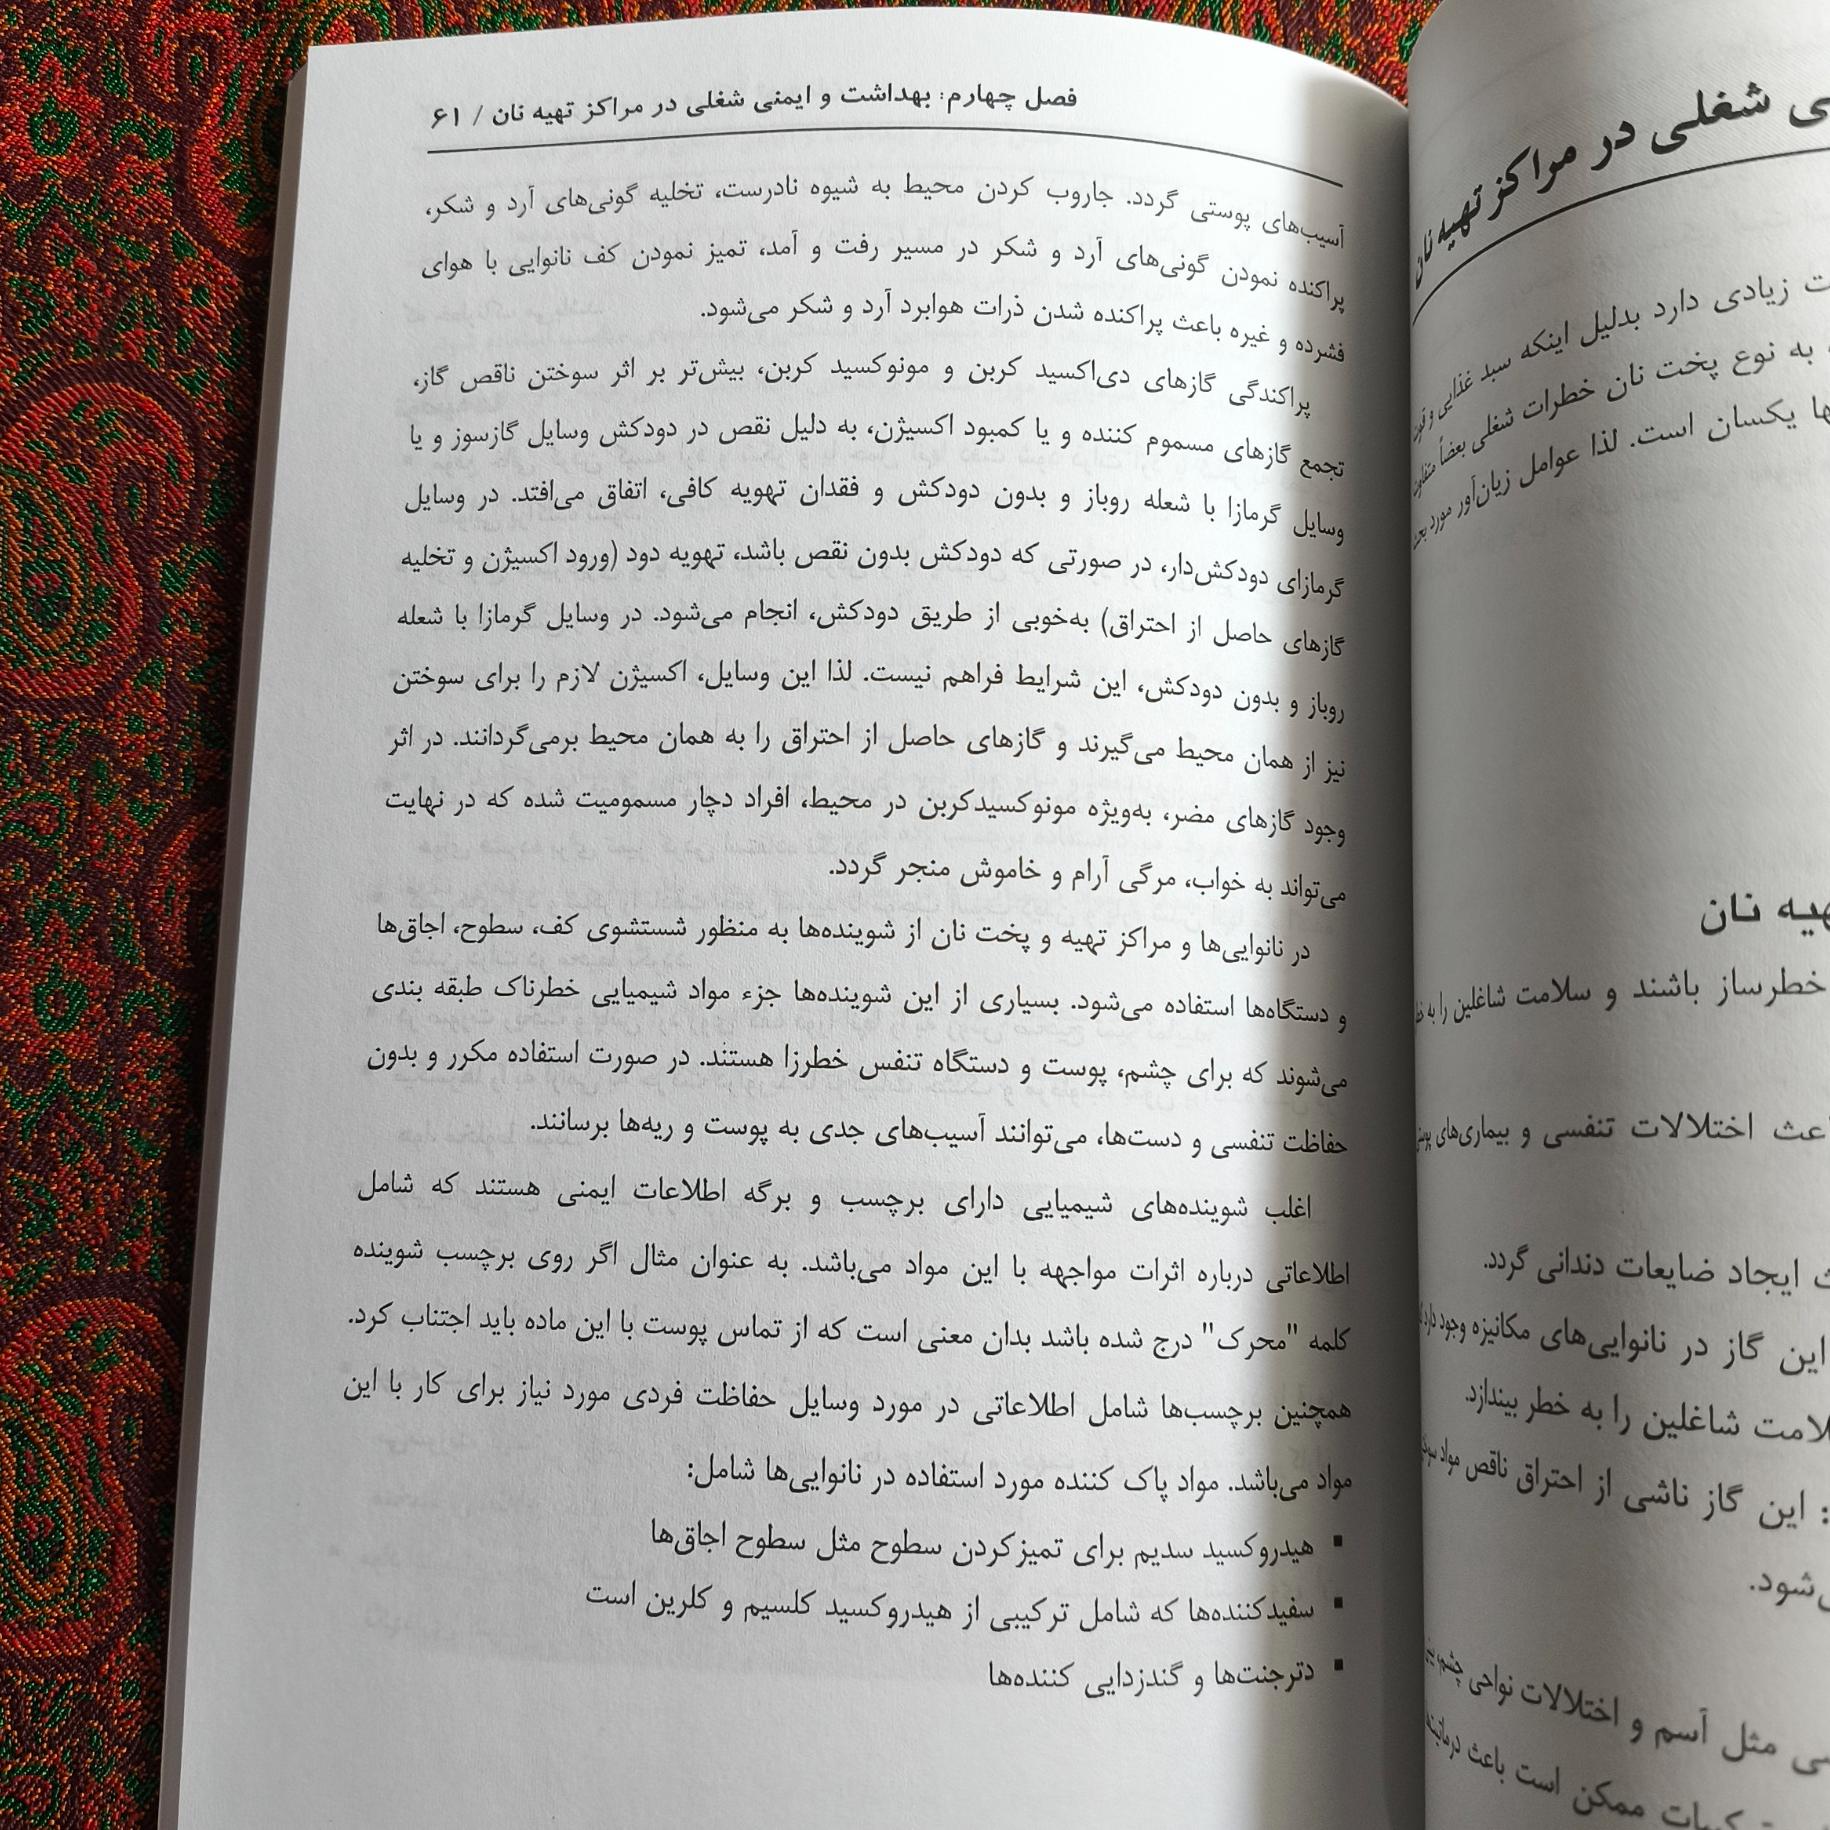 فصل چهارم: بهداشت و ایمنی شغلی در مراکز تهیه نان / ۶۱
آسیب‌های پوستی گردد. جاروب کردن محیط به شیوه نادرست، تخلیه گونی‌های آرد و شکر،
پراکنده نمودن گونی‌های آرد و شکر در مسیر رفت و آمد، تمیز نمودن کف نانوایی با هوای
فشرده و غیره باعث پراکنده شدن ذرات هوابرد آرد و شکر می‌شود.
پراکندگی گازهای دی‌اکسید کربن و مونوکسید کربن، بیش‌تر بر اثر سوختن ناقص گاز،
تجمع گازهای مسموم کننده و یا کمبود اکسیژن، به دلیل نقص در دودکش وسایل گازسوز و یا
وسایل گرمازا با شعله روباز و بدون دودکش و فقدان تهویه کافی، اتفاق می‌افتد. در وسایل
گرمازای دودکش‌دار، در صورتی که دودکش بدون نقص باشد، تهویه دود (ورود اکسیژن و تخلیه
گازهای حاصل از احتراق) به‌خوبی از طریق دودکش، انجام می‌شود. در وسایل گرمازا با شعله
روباز و بدون دودکش، این شرایط فراهم نیست. لذا این وسایل، اکسیژن لازم را برای سوختن
نیز از همان محیط می‌گیرند و گازهای حاصل از احتراق را به همان محیط برمی‌گردانند. در اثر
وجود گازهای مضر، به‌ویژه مونوکسیدکربن در محیط، افراد دچار مسمومیت شده که در نهایت
می‌تواند به خواب، مرگی آرام و خاموش منجر گردد.
در نانوایی‌ها و مراکز تهیه و پخت نان از شوینده‌ها به منظور شستشوی کف، سطوح، اجاق‌ها
و دستگاه‌ها استفاده می‌شود. بسیاری از این شوینده‌ها جزء مواد شیمیایی خطرناک طبقه بندی
می‌شوند که برای چشم، پوست و دستگاه تنفس خطرزا هستند. در صورت استفاده مکرر و بدون
حفاظت تنفسی و دست‌ها، می‌توانند آسیب‌های جدی به پوست و ریه‌ها برسانند.
اغلب شوینده‌های شیمیایی دارای برچسب و برگه اطلاعات ایمنی هستند که شامل
اطلاعاتی درباره اثرات مواجهه با این مواد می‌باشد. به عنوان مثال اگر روی برچسب شوینده
کلمه "محرک" درج شده باشد بدان معنی است که از تماس پوست با این ماده باید اجتناب کرد.
همچنین برچسب‌ها شامل اطلاعاتی در مورد وسایل حفاظت فردی مورد نیاز برای کار با این
مواد می‌باشد. مواد پاک کننده مورد استفاده در نانوایی‌ها شامل:
▪ هیدروکسید سدیم برای تمیزکردن سطوح مثل سطوح اجاق‌ها
▪ سفیدکننده‌ها که شامل ترکیبی از هیدروکسید کلسیم و کلرین است
▪ دترجنت‌ها و گندزدایی کننده‌ها
شغلی در مراکز تهیه نان
زیادی دارد بدلیل اینکه سبد غذایی و
به نوع پخت نان خطرات شغلی بعضاً متفاوت
یکسان است. لذا عوامل زیان‌آور مورد بحث
نان
خطرساز باشند و سلامت شاغلین را به
اختلالات تنفسی و بیماری‌های
ایجاد ضایعات دندانی گردد.
این گاز در نانوایی‌های مکانیزه وجود دارد
شاغلین را به خطر بیندازد.
: این گاز ناشی از احتراق ناقص مواد
مثل آسم و اختلالات نواحی چشم،
ممکن است باعث